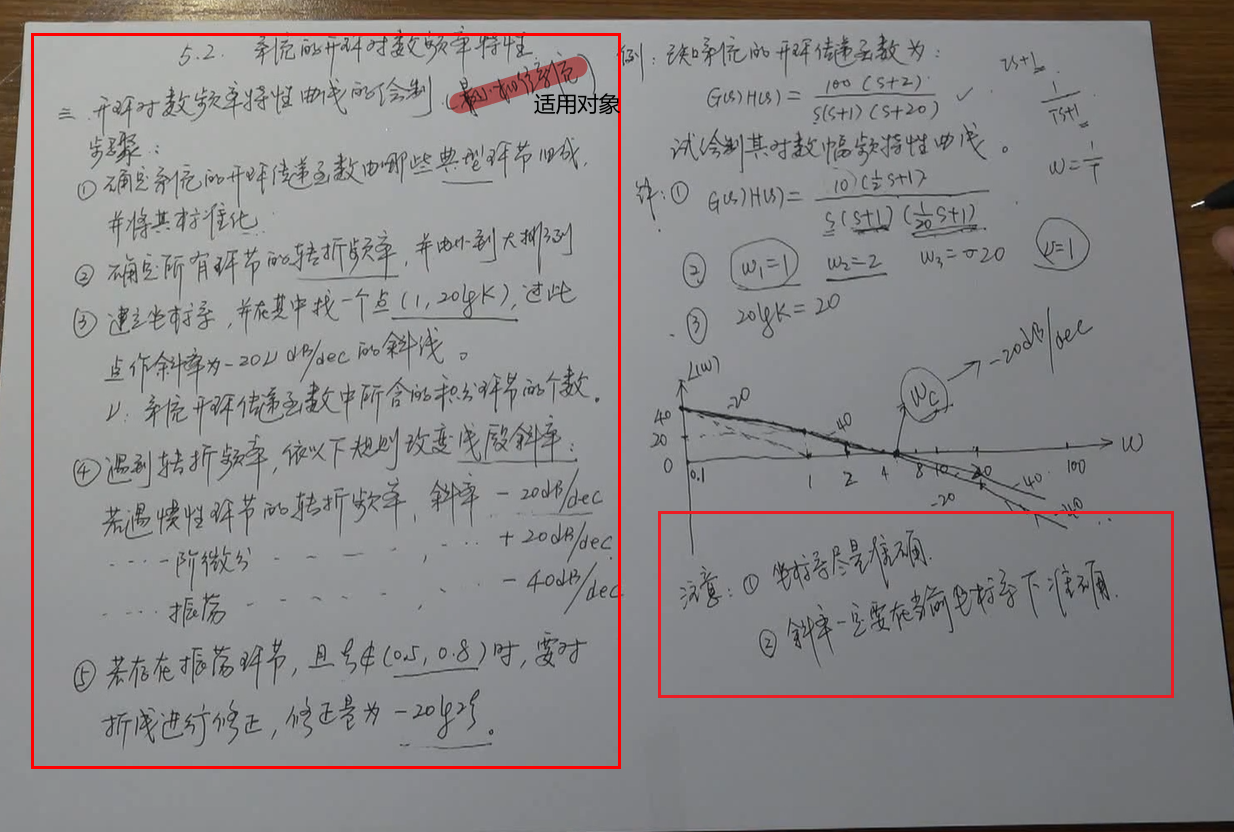 5.2. 系统的开环对数频率特性
三、开环对数频率特性曲线的绘制 (最小相位系统)
适用对象
步骤：
① 确定系统的开环传递函数由哪些典型环节组成，
并将其标准化.
② 确定所有环节的转折频率，并由小到大排列
③ 建立坐标系，并在其中找一个点(1, 20lgK)，过此
点作斜率为-20ν dB/dec的斜线。
ν. 系统开环传递函数中所含的积分环节的个数.
④ 遇到转折频率，依以下规则改变线段斜率：
若遇惯性环节的转折频率，斜率 -20dB/dec
一阶微分 +20dB/dec.
振荡 -40dB/dec
⑤ 若存在振荡环节，且ξ∉(0.5, 0.8)时，要对
折线进行修正，修正量为 -20lg2ξ。
例：系统的开环传递函数为：
G(s)H(s) = 100(s+2) / s(s+1)(s+20) ✓
τs+1
1 / Ts+1
试绘制其对数幅频特性曲线。
w = 1/T
解：① G(s)H(s) = 10(½s+1) / s(s+1)(1/20 s+1)
② w₁=1 w₂=2 w₃=20 ν=1
③ 20lgK=20
L(w)
wc → -20dB/dec
40 -20 -40
20
0 0.1 1 2 4 8 10 20 100 w
-20 -40
-40
注意：① 坐标系尽量准确.
② 斜率一定要在当前坐标系下准确.